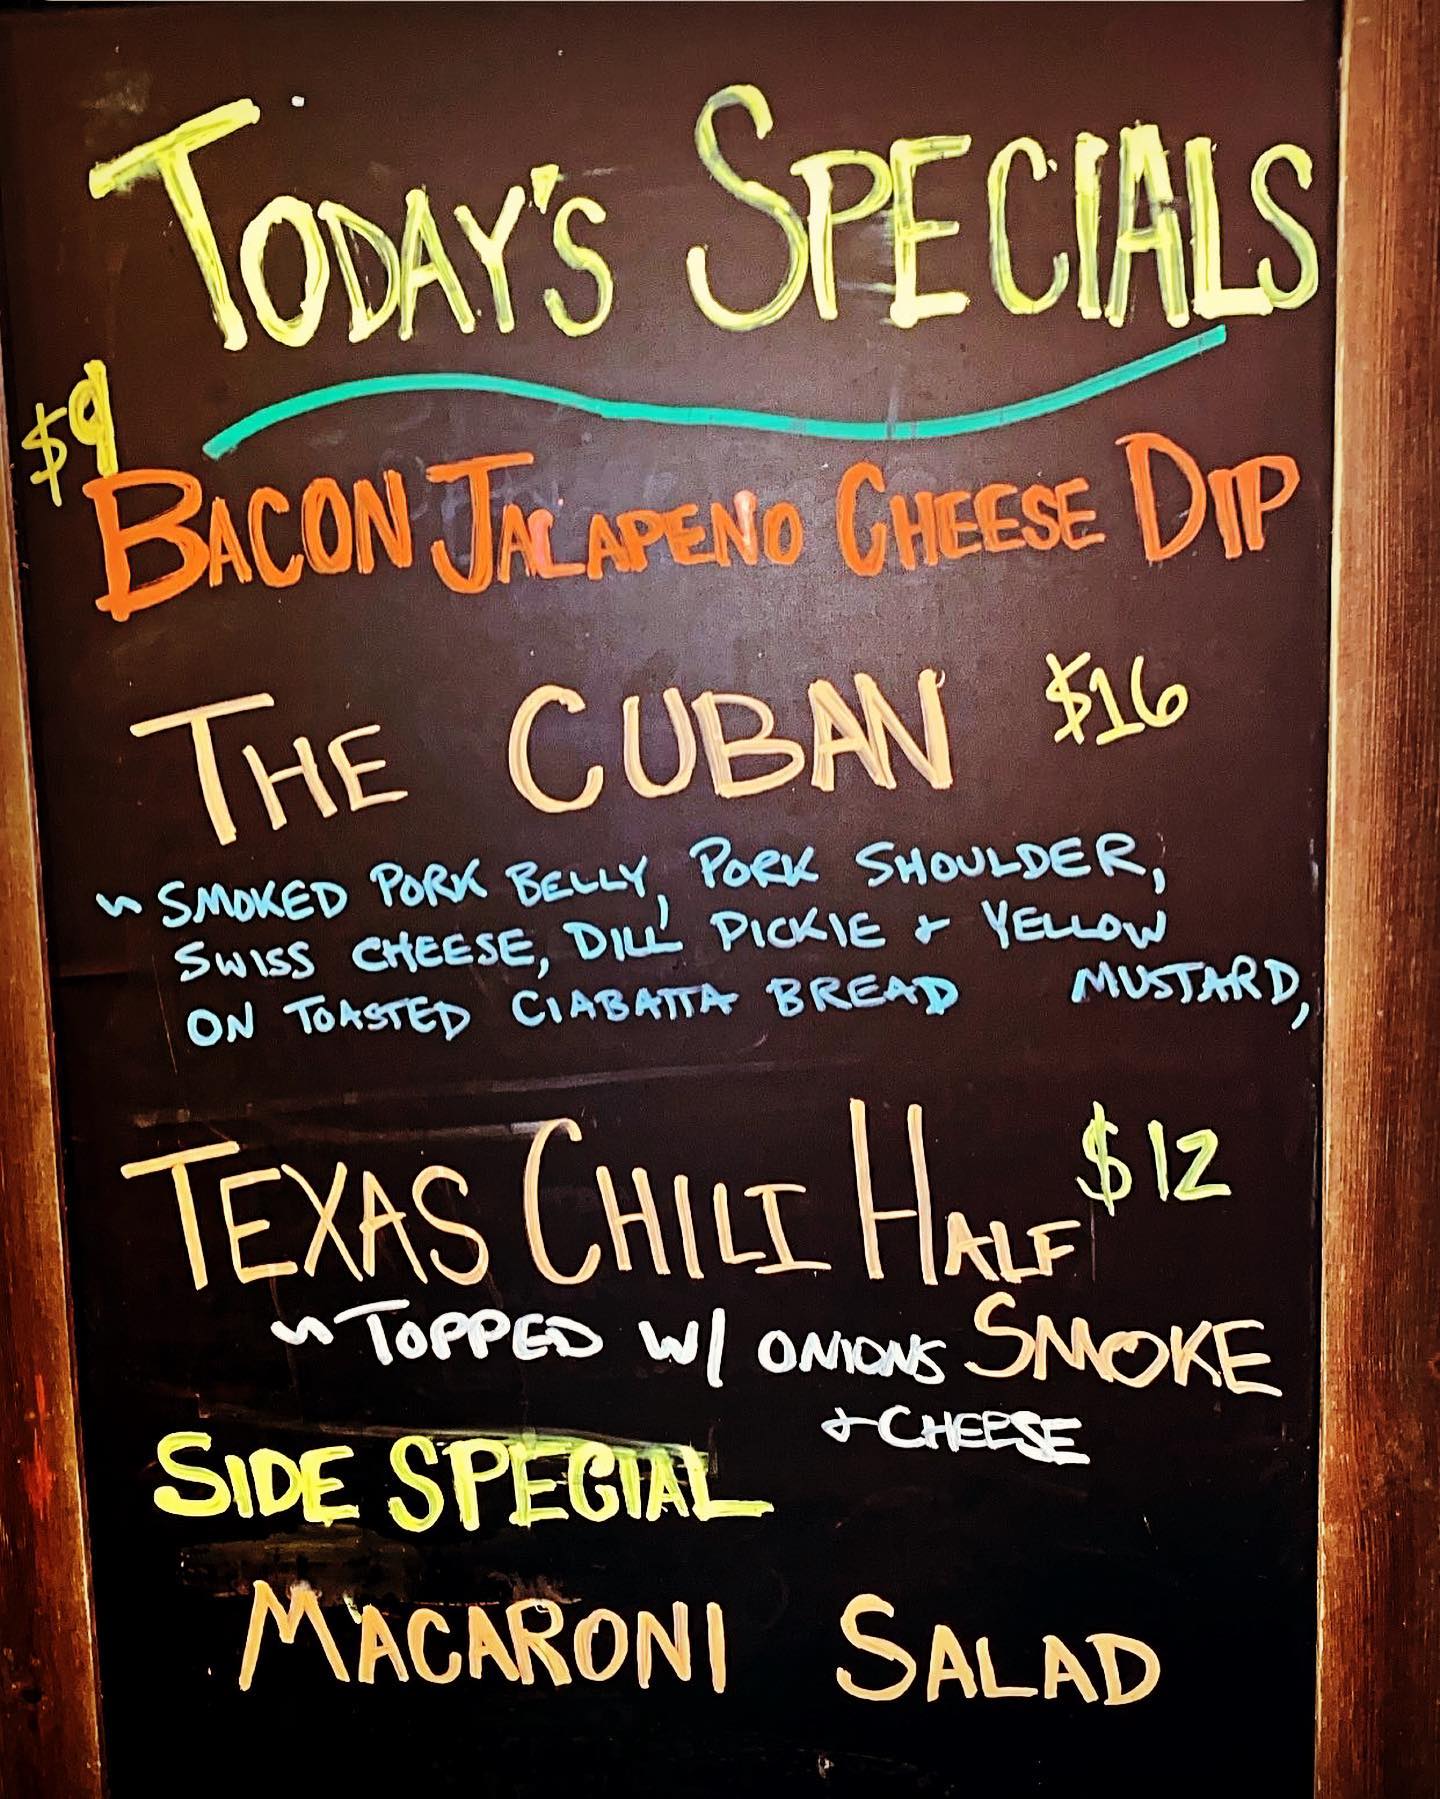 TODAY'S SPECIALS
$9
BACON JALAPENO CHEESE DIP
THE CUBAN $16
~ SMOKED PORK BELLY, PORK SHOULDER,
SWISS CHEESE, DILL PICKIE + YELLOW
MUSTARD,
ON TOASTED CIABATTA BREAD
TEXAS CHILI HALF $12
SMOKE
~ TOPPED W/ ONIONS
+ CHEESE
SIDE SPECIAL
MACARONI SALAD